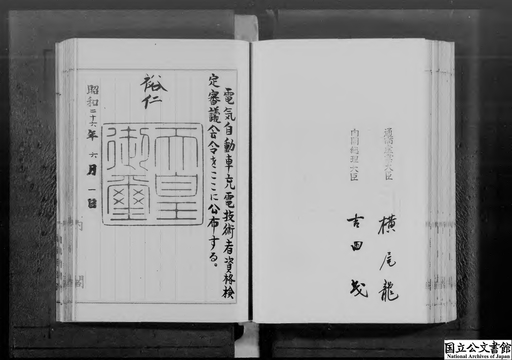 電気自動車充電技術者資格検
定審議会令をここに公布する。
裕仁
天皇
御璽
昭和二十六年六月一日
内閣
通商産業大臣
横尾龍
内閣総理大臣
吉田茂
国立公文書館
National Archives of Japan